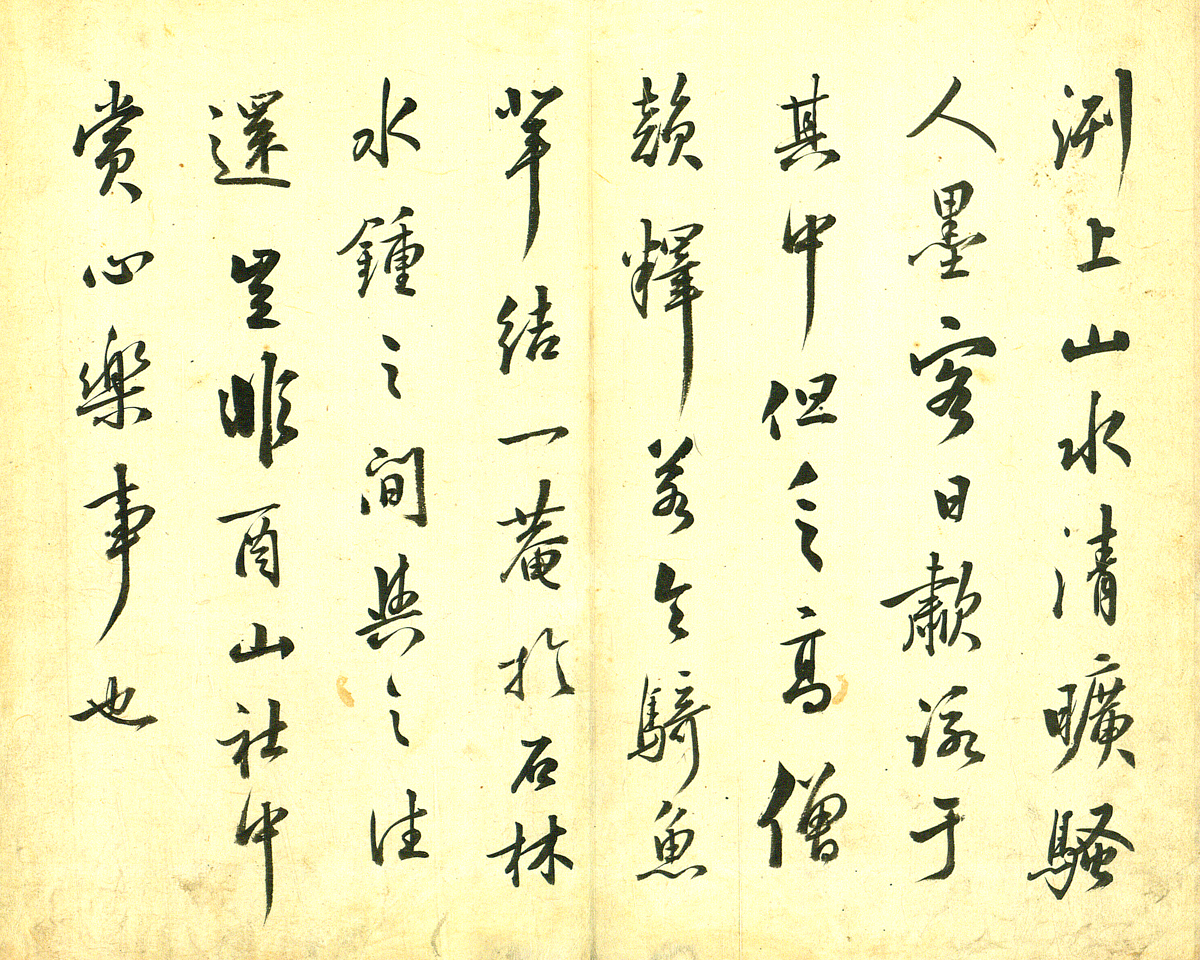 泖上山水清曠騷
人墨客日歗詠于
其中但乏高僧
韻釋若令騎魚
輩結一菴於石林
水鍾之間與之往
還豈非酉山社中
賞心樂事也